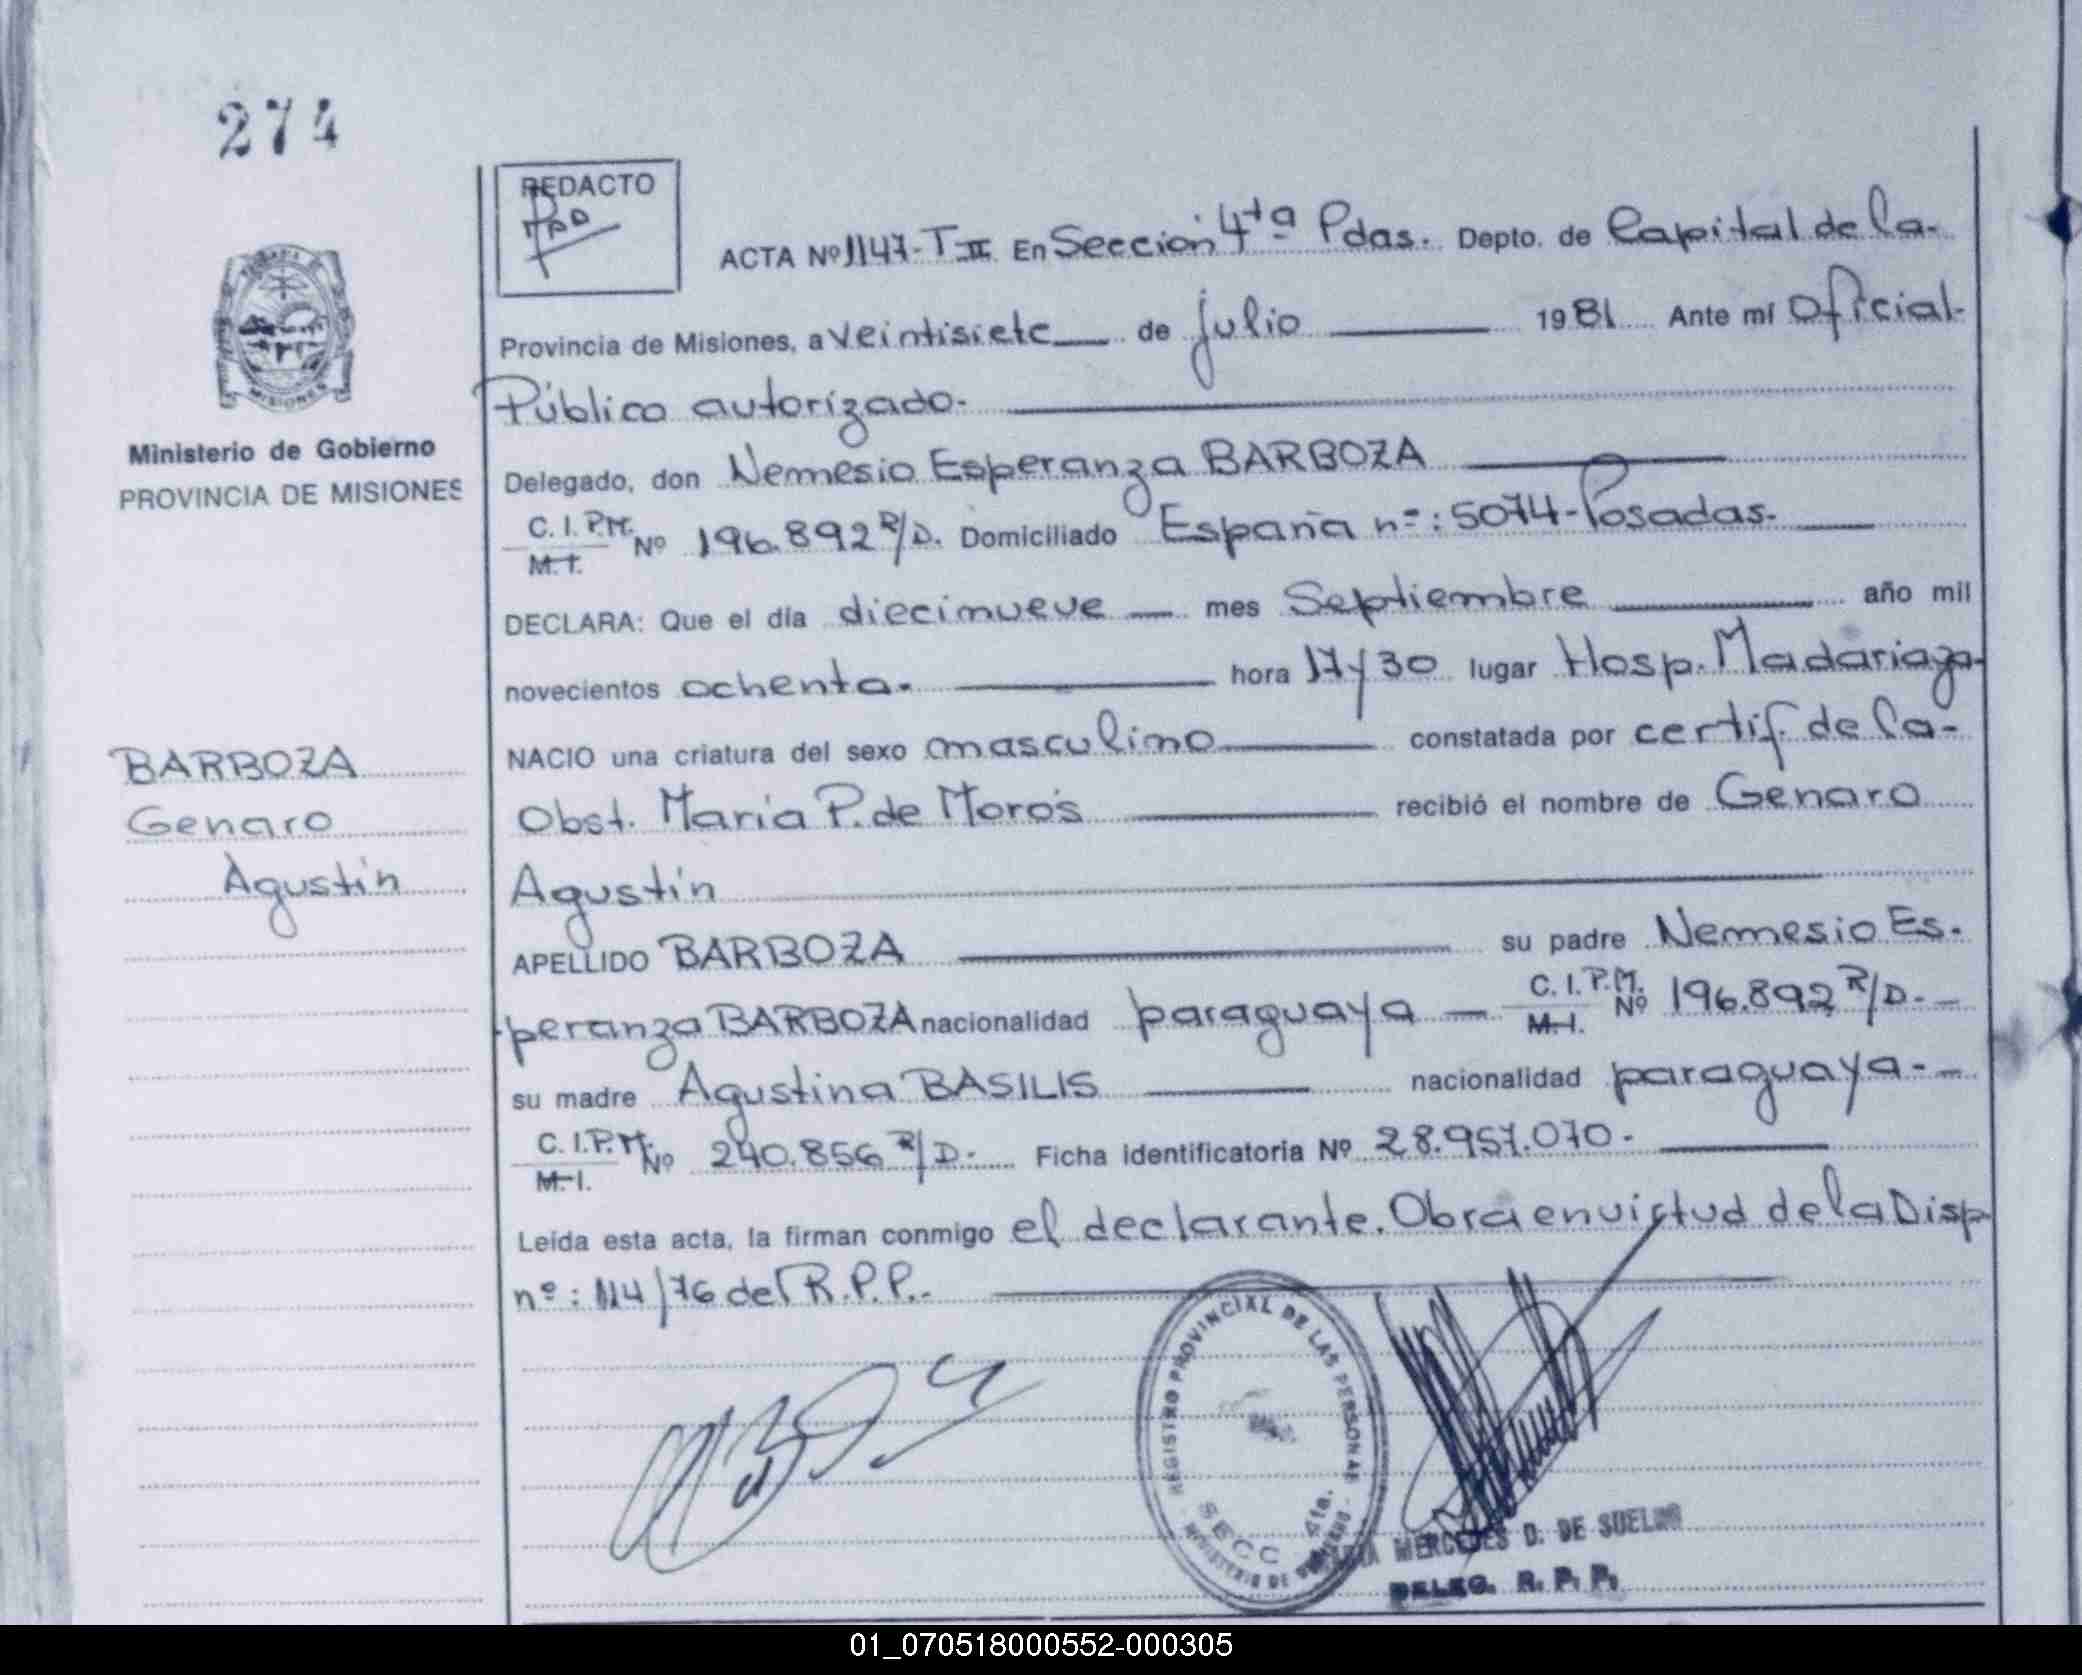 274
REDACTO
ACTA Nº 1147-T II En Sección 4ta Pdas. Depto. de Capital de la-
Provincia de Misiones, a veintisiete de julio 1981 Ante mí Oficial-
Público autorizado-
Ministerio de Gobierno
PROVINCIA DE MISIONES
Delegado, don Nemesio Esperanza BARBOZA
C. I. P.M. M. I. Nº 196.892 R/D. Domiciliado España nº: 5074-Posadas.
DECLARA: Que el día diecinueve mes Septiembre año mil
novecientos ochenta. hora 17 y 30 lugar Hosp. Madariaga-
NACIO una criatura del sexo masculino constatada por certif. de la-
Obst. María P. de Moros recibió el nombre de Genaro
Agustín
BARBOZA
Genaro
Agustín
APELLIDO BARBOZA su padre Nemesio Es-
peranza BARBOZA nacionalidad paraguaya C. I. P.M. M. I. Nº 196.892 R/D.-
su madre Agustina BASILIS nacionalidad paraguaya-
C. I. P.M. M. I. Nº 240.856 R/D. Ficha identificatoria Nº 28.957.070-
Leída esta acta, la firman conmigo el declarante. Obra en virtud de la Disp
nº: 114/76 del R.P.P.-
REGISTRO PROVINCIAL DE LAS PERSONAS
SECC 4ta.
MINISTERIO DE GOBIERNO
MERCEDES D. DE
DELEG. R. P. P.
01_070518000552-000305